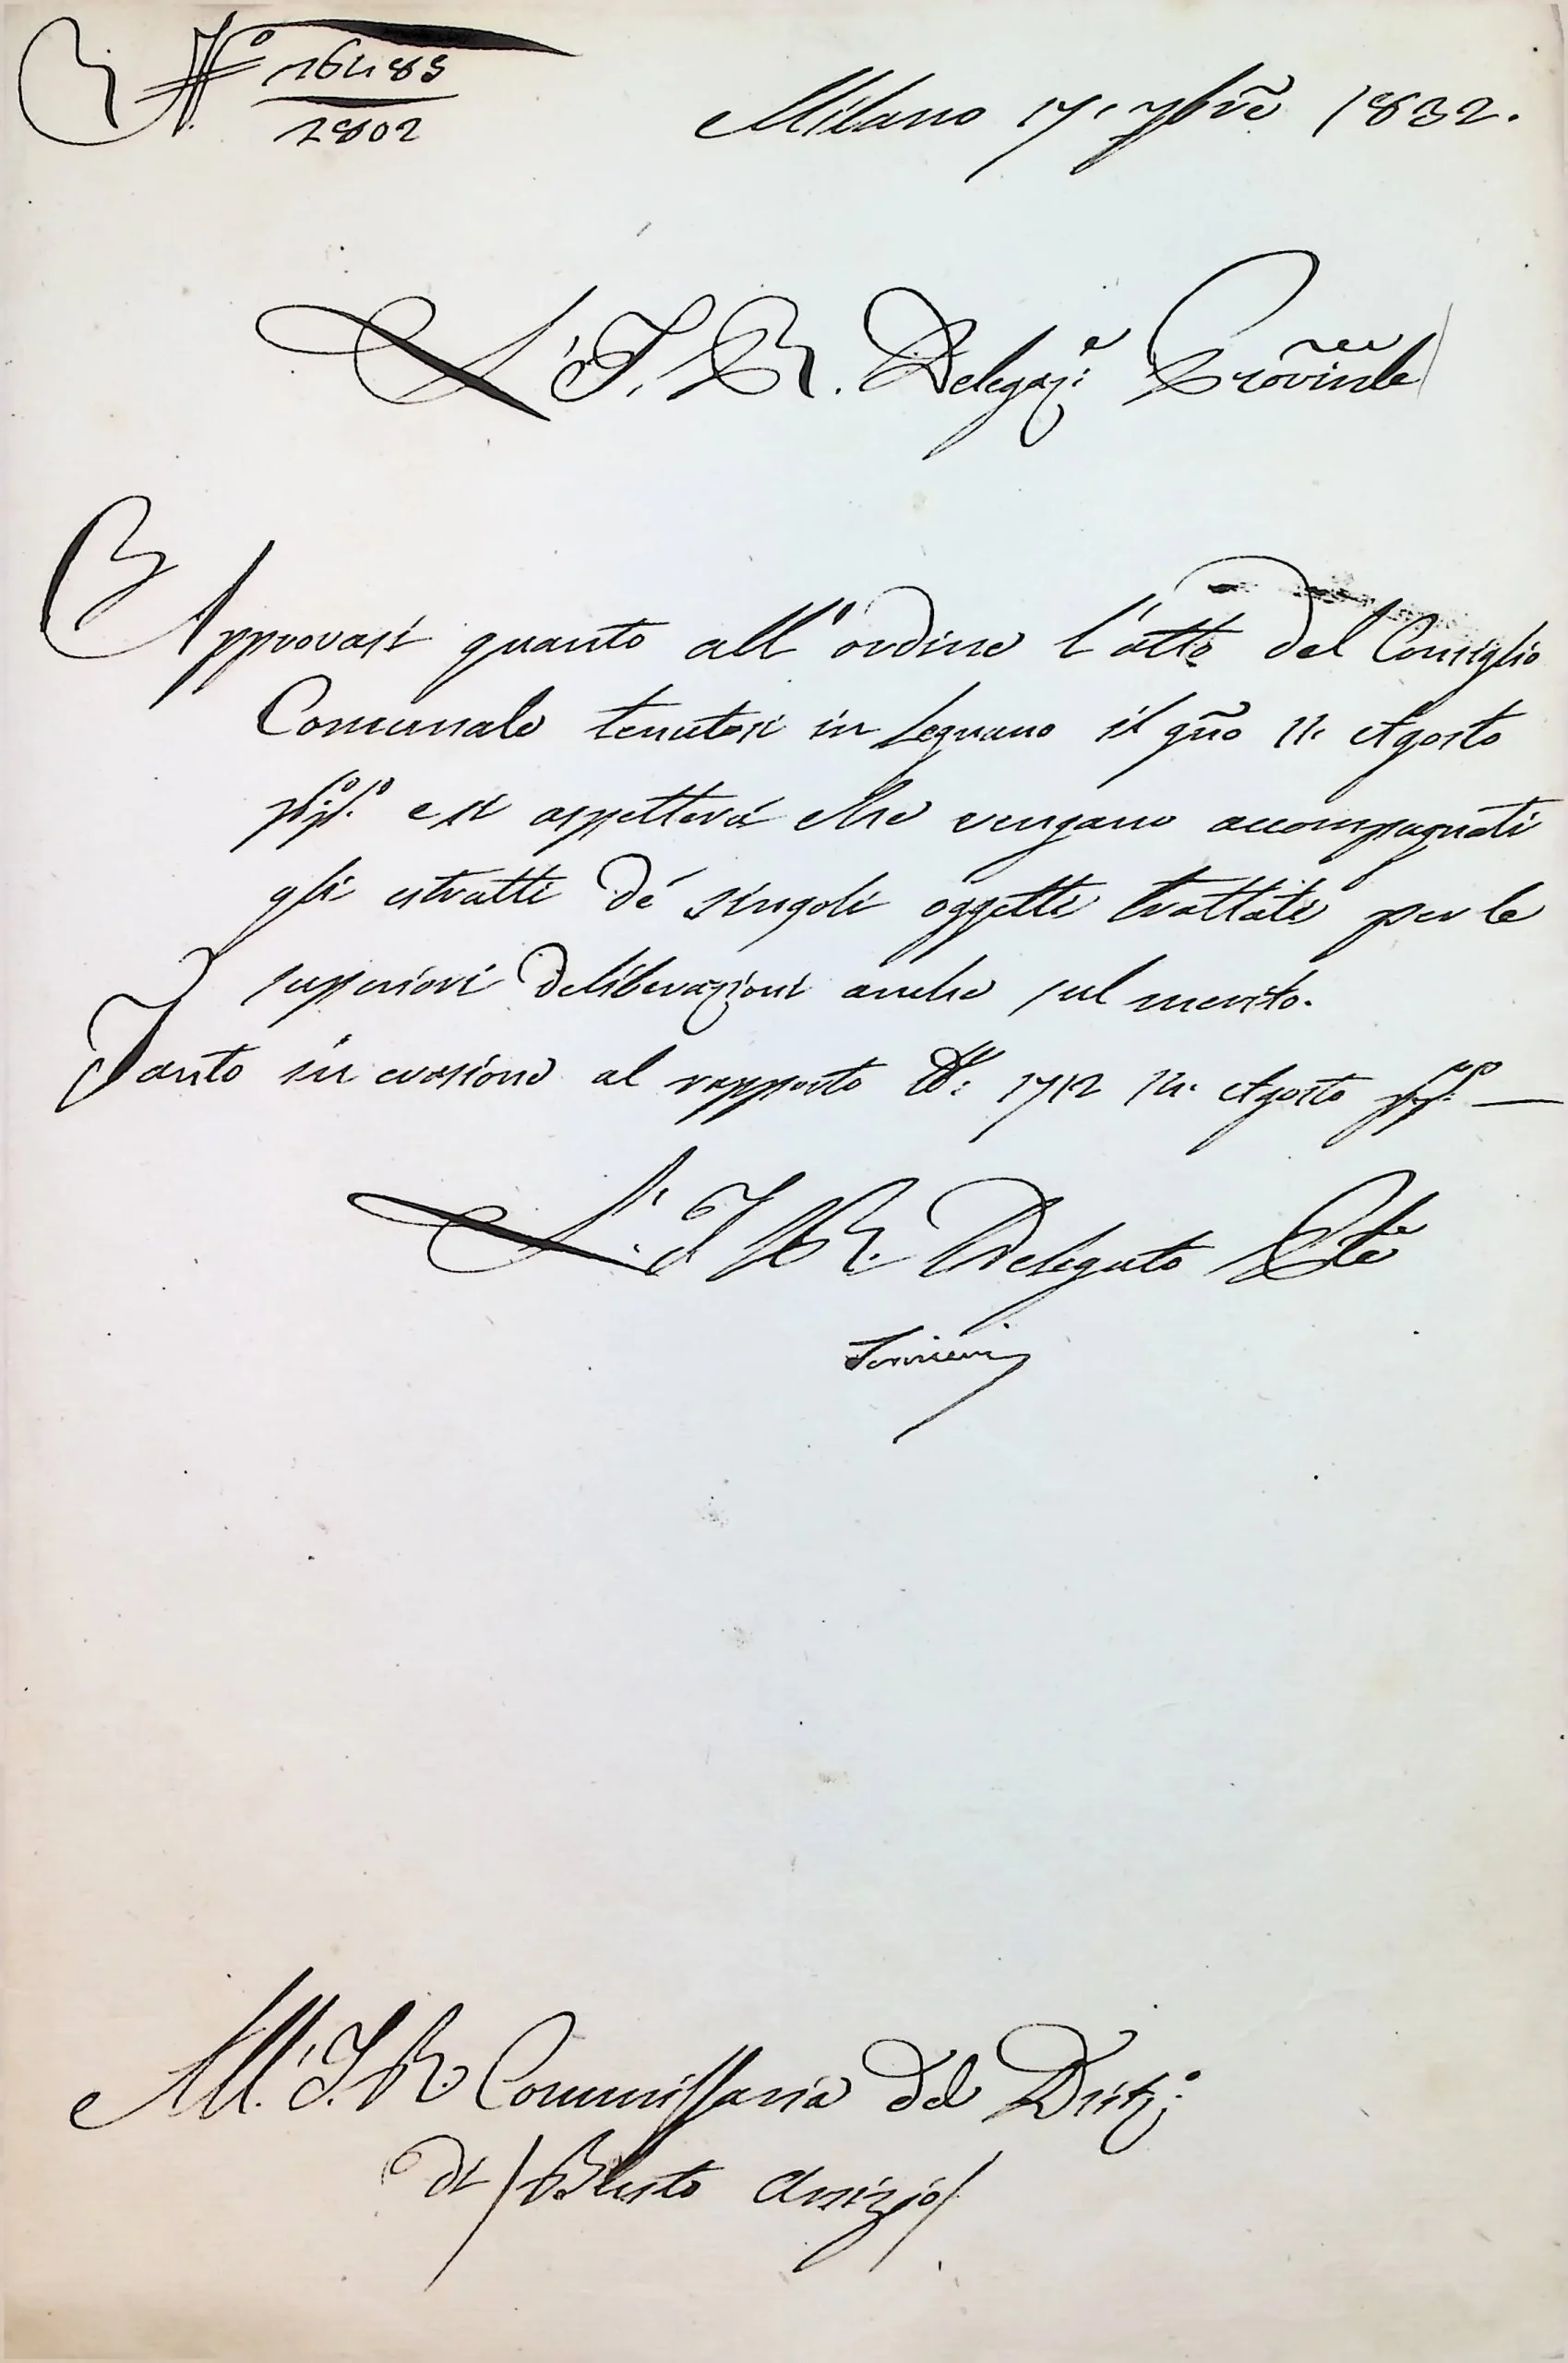 N.o 16485
2802
Milano 17. 7brẽ 1832.
L'I. R. Delegazi.e Provinle
Approvasi quanto all'ordine l'atto del Consiglio
Comunale tenutosi in Legnano il gño 11. Agosto
p.o p.o e si aspetterà che vengano accompagnati
gli estratti de' singoli oggetti trattati per le
superiori deliberazioni anche sul merito.
Tanto in evasione al rapporto N.: 1712 14. Agosto p.o p.o —
L'I. R. Delegato Ple
All'I. R. Commissaria del Distto.
di Busto Arsizio